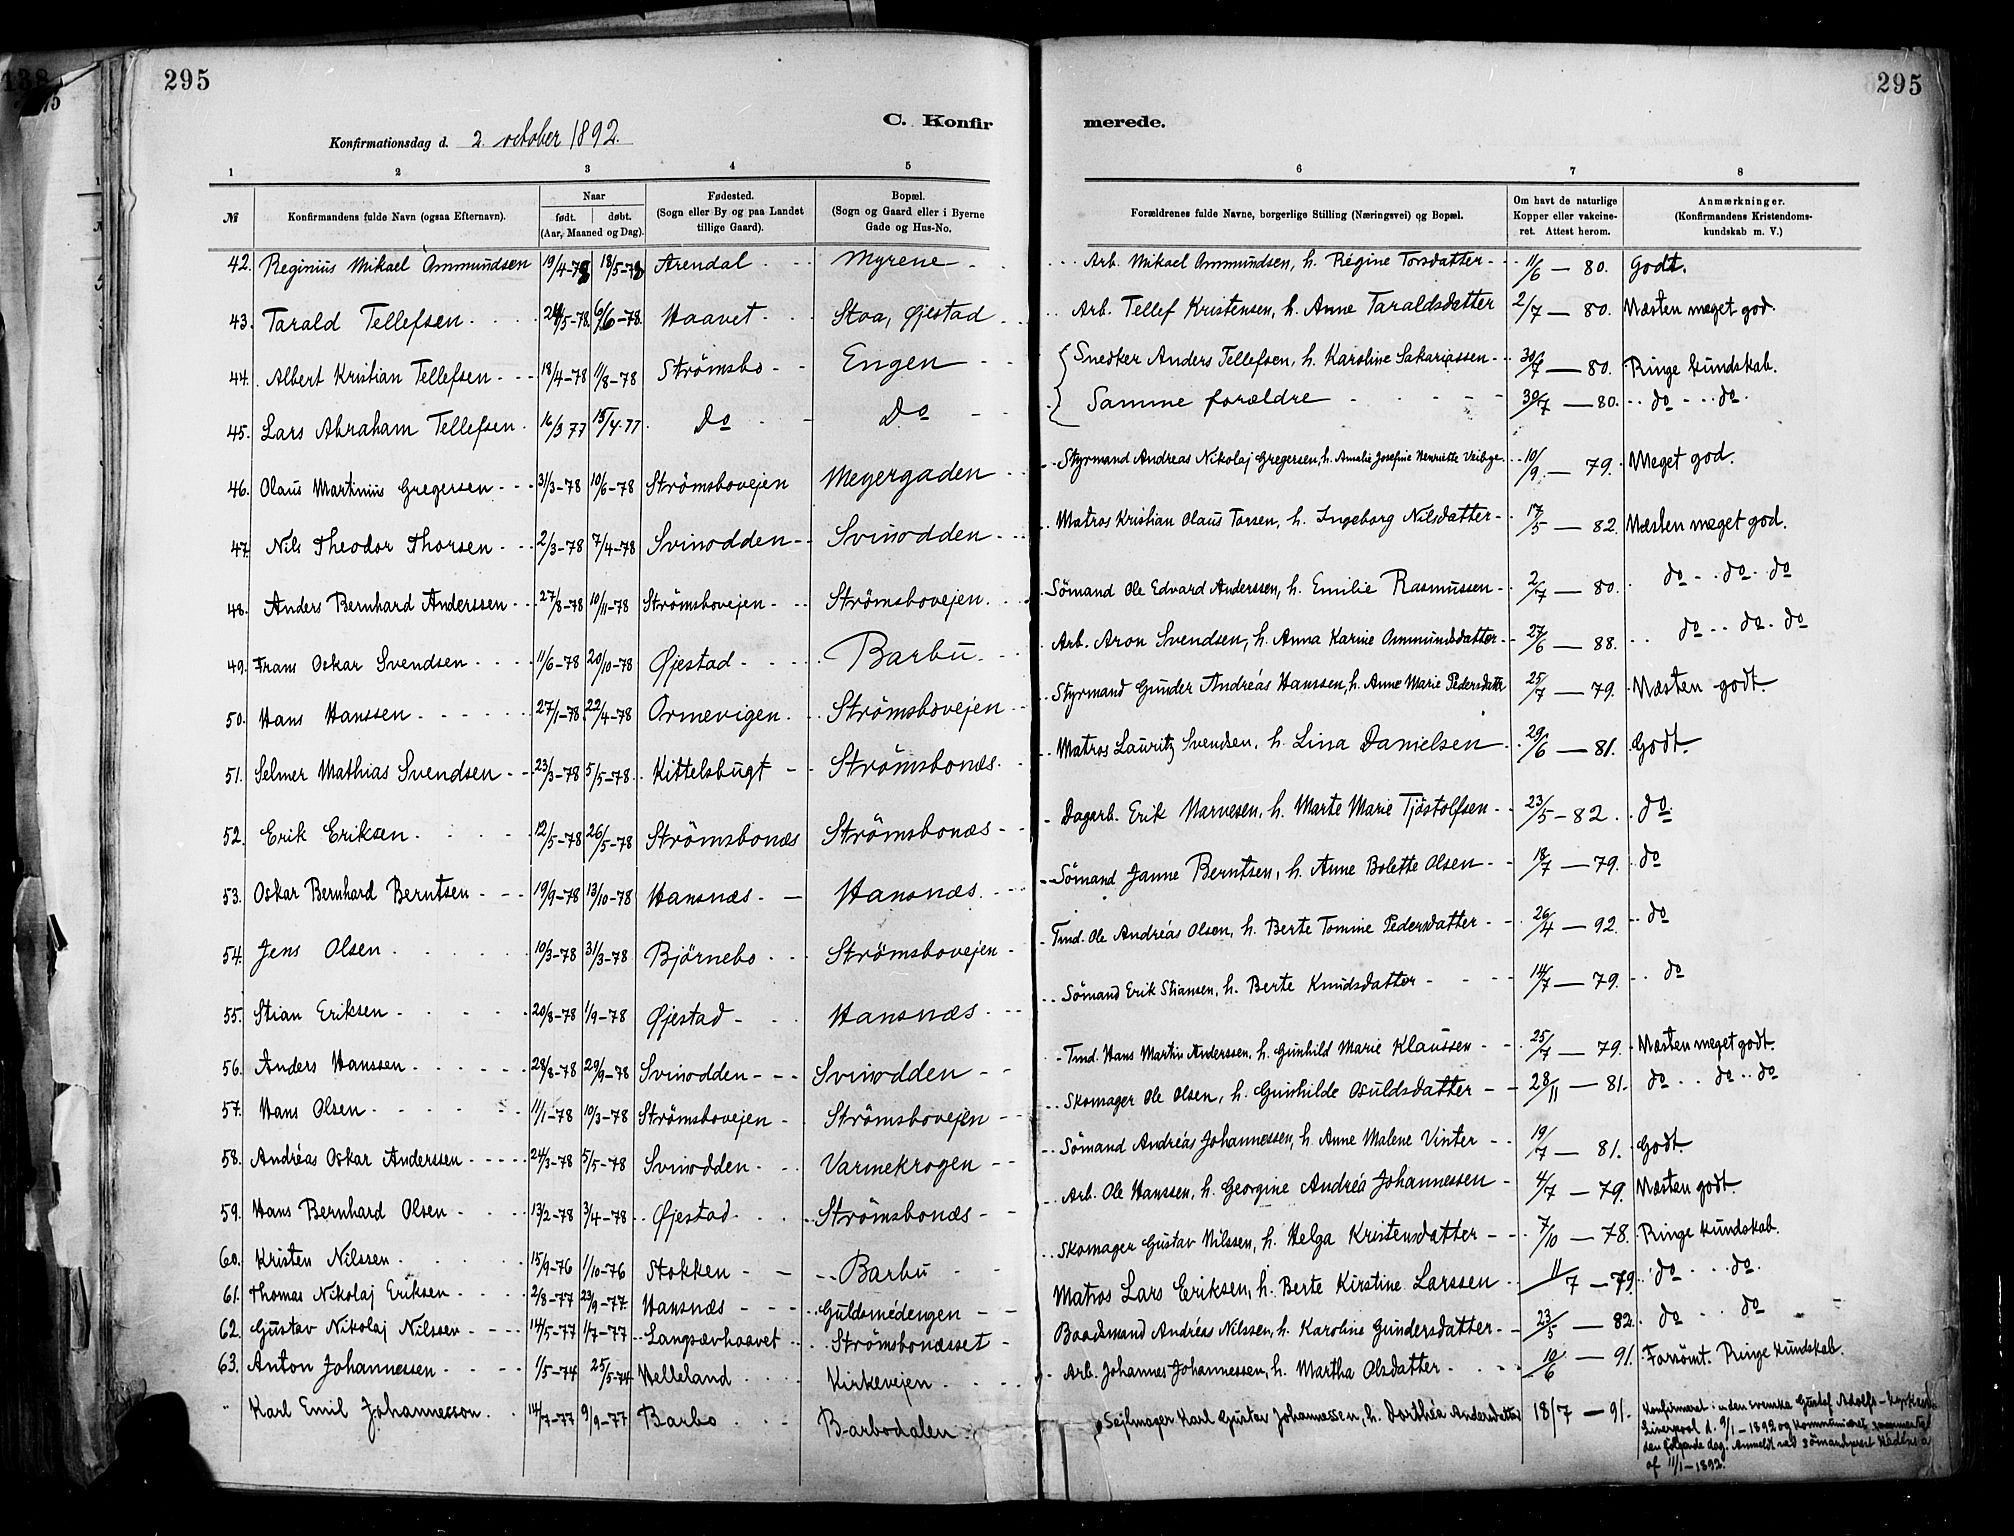 295
295
C. Konfir
merede.
Konfirmationsdag d. 2. october 1892.
1 2 3 4 5 6 7 8
№ Konfirmandens fulde Navn (ogsaa Efternavn). Naar født. døbt. (Aar, Maaned og Dag). Fødested. (Sogn eller By og paa Landet tillige Gaard). Bopæl. (Sogn og Gaard eller i Byerne Gade og Hus-No. Forældrenes fulde Navne, borgerlige Stilling (Næringsvei) og Bopæl. Om havt de naturlige Kopper eller vakcineret. Attest herom. Anmærkninger. (Konfirmandens Kristendomskundskab m. V.)
42. Reginius Mikael Ammundsen 19/4-78 18/5-78 Arendal Myrene Arb. Mikael Ammundsen, h. Regine Torsdatter 11/6 — 80. Godt.
43. Tarald Tellefsen 24/5-78 6/6-78. Haavet Stoa, Øjestad Arb. Tellef Kristensen, h. Anne Taraldsdatter 2/7 — 80. Næsten meget god.
44. Albert Kristian Tellefsen 18/4-78 11/8-78 Strömsbo Engen Snedker Anders Tellefsen, h. Karoline Sakariassen 30/7 — 80. Ringe kundskab.
45. Lars Abraham Tellefsen 16/3 77 15/4-77 Do Do Samme forældre 30/7 — 80. do do.
46. Olaus Martinius Gregersen 31/3-78 10/6-78 Strömsbovejen Meyergaden Styrmand Andreas Nikolaj Gregersen, h. Amalie Josefine Henriette 10/9 — 79. Meget god.
47. Nils Theodor Thorsen 2/3-78 7/4-78 Svinodden Svinodden Matros Kristian Olaus Torsen, h. Ingeborg Nilsdatter 17/5 — 82. Næsten meget god.
48. Anders Bernhard Anderssen 27/8-78 10/11-78 Strömsbovejen Strömsbovejen Sömand Ole Edvard Anderssen, h. Emilie Rasmussen 2/7 — 80. do do do
49. Frans Oskar Svendsen 11/6-78 20/10-78 Øjestad Barbu Arb. Aron Svendsen, h. Anna Karine Ommundsdatter 27/6 — 88. do do do
50. Hans Hanssen 27/1-78 22/4-78 Ormevigen Strömsbovejen Styrmand Gunder Andreas Hanssen, h. Anne Marie Pedersdatter 25/7 — 79. Næsten godt.
51. Selmer Mathias Svendsen 23/3-78 5/5-78 Kittelsbugt Strömsbonæs Matros Lauritz Svendsen, h. Lina Danielsen 29/6 — 81. Godt.
52. Erik Eriksen 12/5-78 26/5-78 Strömsbonæs Strömsbonæs Dagarb. Erik Narvesen, h. Marte Marie Tjöstolfsen 23/5-82. do
53. Oskar Bernhard Berntsen 19/9-78 13/10-78 Hansnæs Hansnæs Sömand Janne Berntsen, h. Anne Bolette Olsen 18/7 — 79. do
54. Jens Olsen 10/3-78 31/3-78 Björnebo Strömsbovejen Tmd. Ole Andreas Olsen, h. Berte Tomine Pedersdatter 26/4 — 92. do
55. Stian Eriksen 20/8-78 1/9-78 Øjestad Hansnæs Sömand Erik Stiansen, h. Berte Knudsdatter 14/7 — 79. do
56. Anders Hanssen 28/8-78 29/9-78 Svinodden Svinodden Tmd. Hans Martin Anderssen, h. Gunhild Marie Klaussen 25/7 — 79. Næsten meget godt.
57. Hans Olsen 11/1-78 10/3-78 Strömsbovejen Strömsbovejen Skomager Ole Olsen, h. Gunhilde Osuldsdatter 28/11 — 81. do do do
58. Andréas Oskar Anderssen 24/3-78 5/5-78 Svinodden Varmekrogen Sömand Andréas Johannessen, h. Anne Malene Vinter 19/7 — 81. Godt.
59. Hans Bernhard Olsen 13/2-78 3/4-78 Øjestad Strömsbonæs Arb. Ole Hanssen, h. Georgine Andréa Johannessen 4/7 — 79. Næsten godt.
60. Kristen Nilssen 15/9-76 1/10-76 Stokken Barbu Skomager Gustav Nilssen, h. Helga Kristensdatter 7/10 — 78. Ringe kundskab.
61. Thomas Nikolaj Eriksen 2/8-77 23/9-77 Hansnæs Guldsmedengen Matros Lars Eriksen, h. Berte Kirstine Larssen 11/7 — 79. do do.
62. Gustav Nikolaj Nilssen 14/5-77 1/7-77 Langsævhaavet Strömsbonæsset Baadsmand Andréas Nilssen, h. Karoline Gundersdatter 23/5 — 82. do do
63. Anton Johannessen 1/5-74 25/5-74 Helleland Kirkevejen Arb. Johannes Johannessen, h. Martha Olsdatter 10/6 — 91. Forsömt. Ringe kundskab.
" Karl Emil Johannesson 14/7-77 9/9-77 Barbo Barbodalen Sejlmager Karl Gustav Johannessen, h. Dorthéa Andersdatter 18/7 — 91. Konfirmeret i den svenske Gustaf Adolfs-
Liverpool d. 9/1-1892 og kommuniceret sammesteds
den følgende dag. Anmeldt ved sömandsprest
af 11/1-1892.